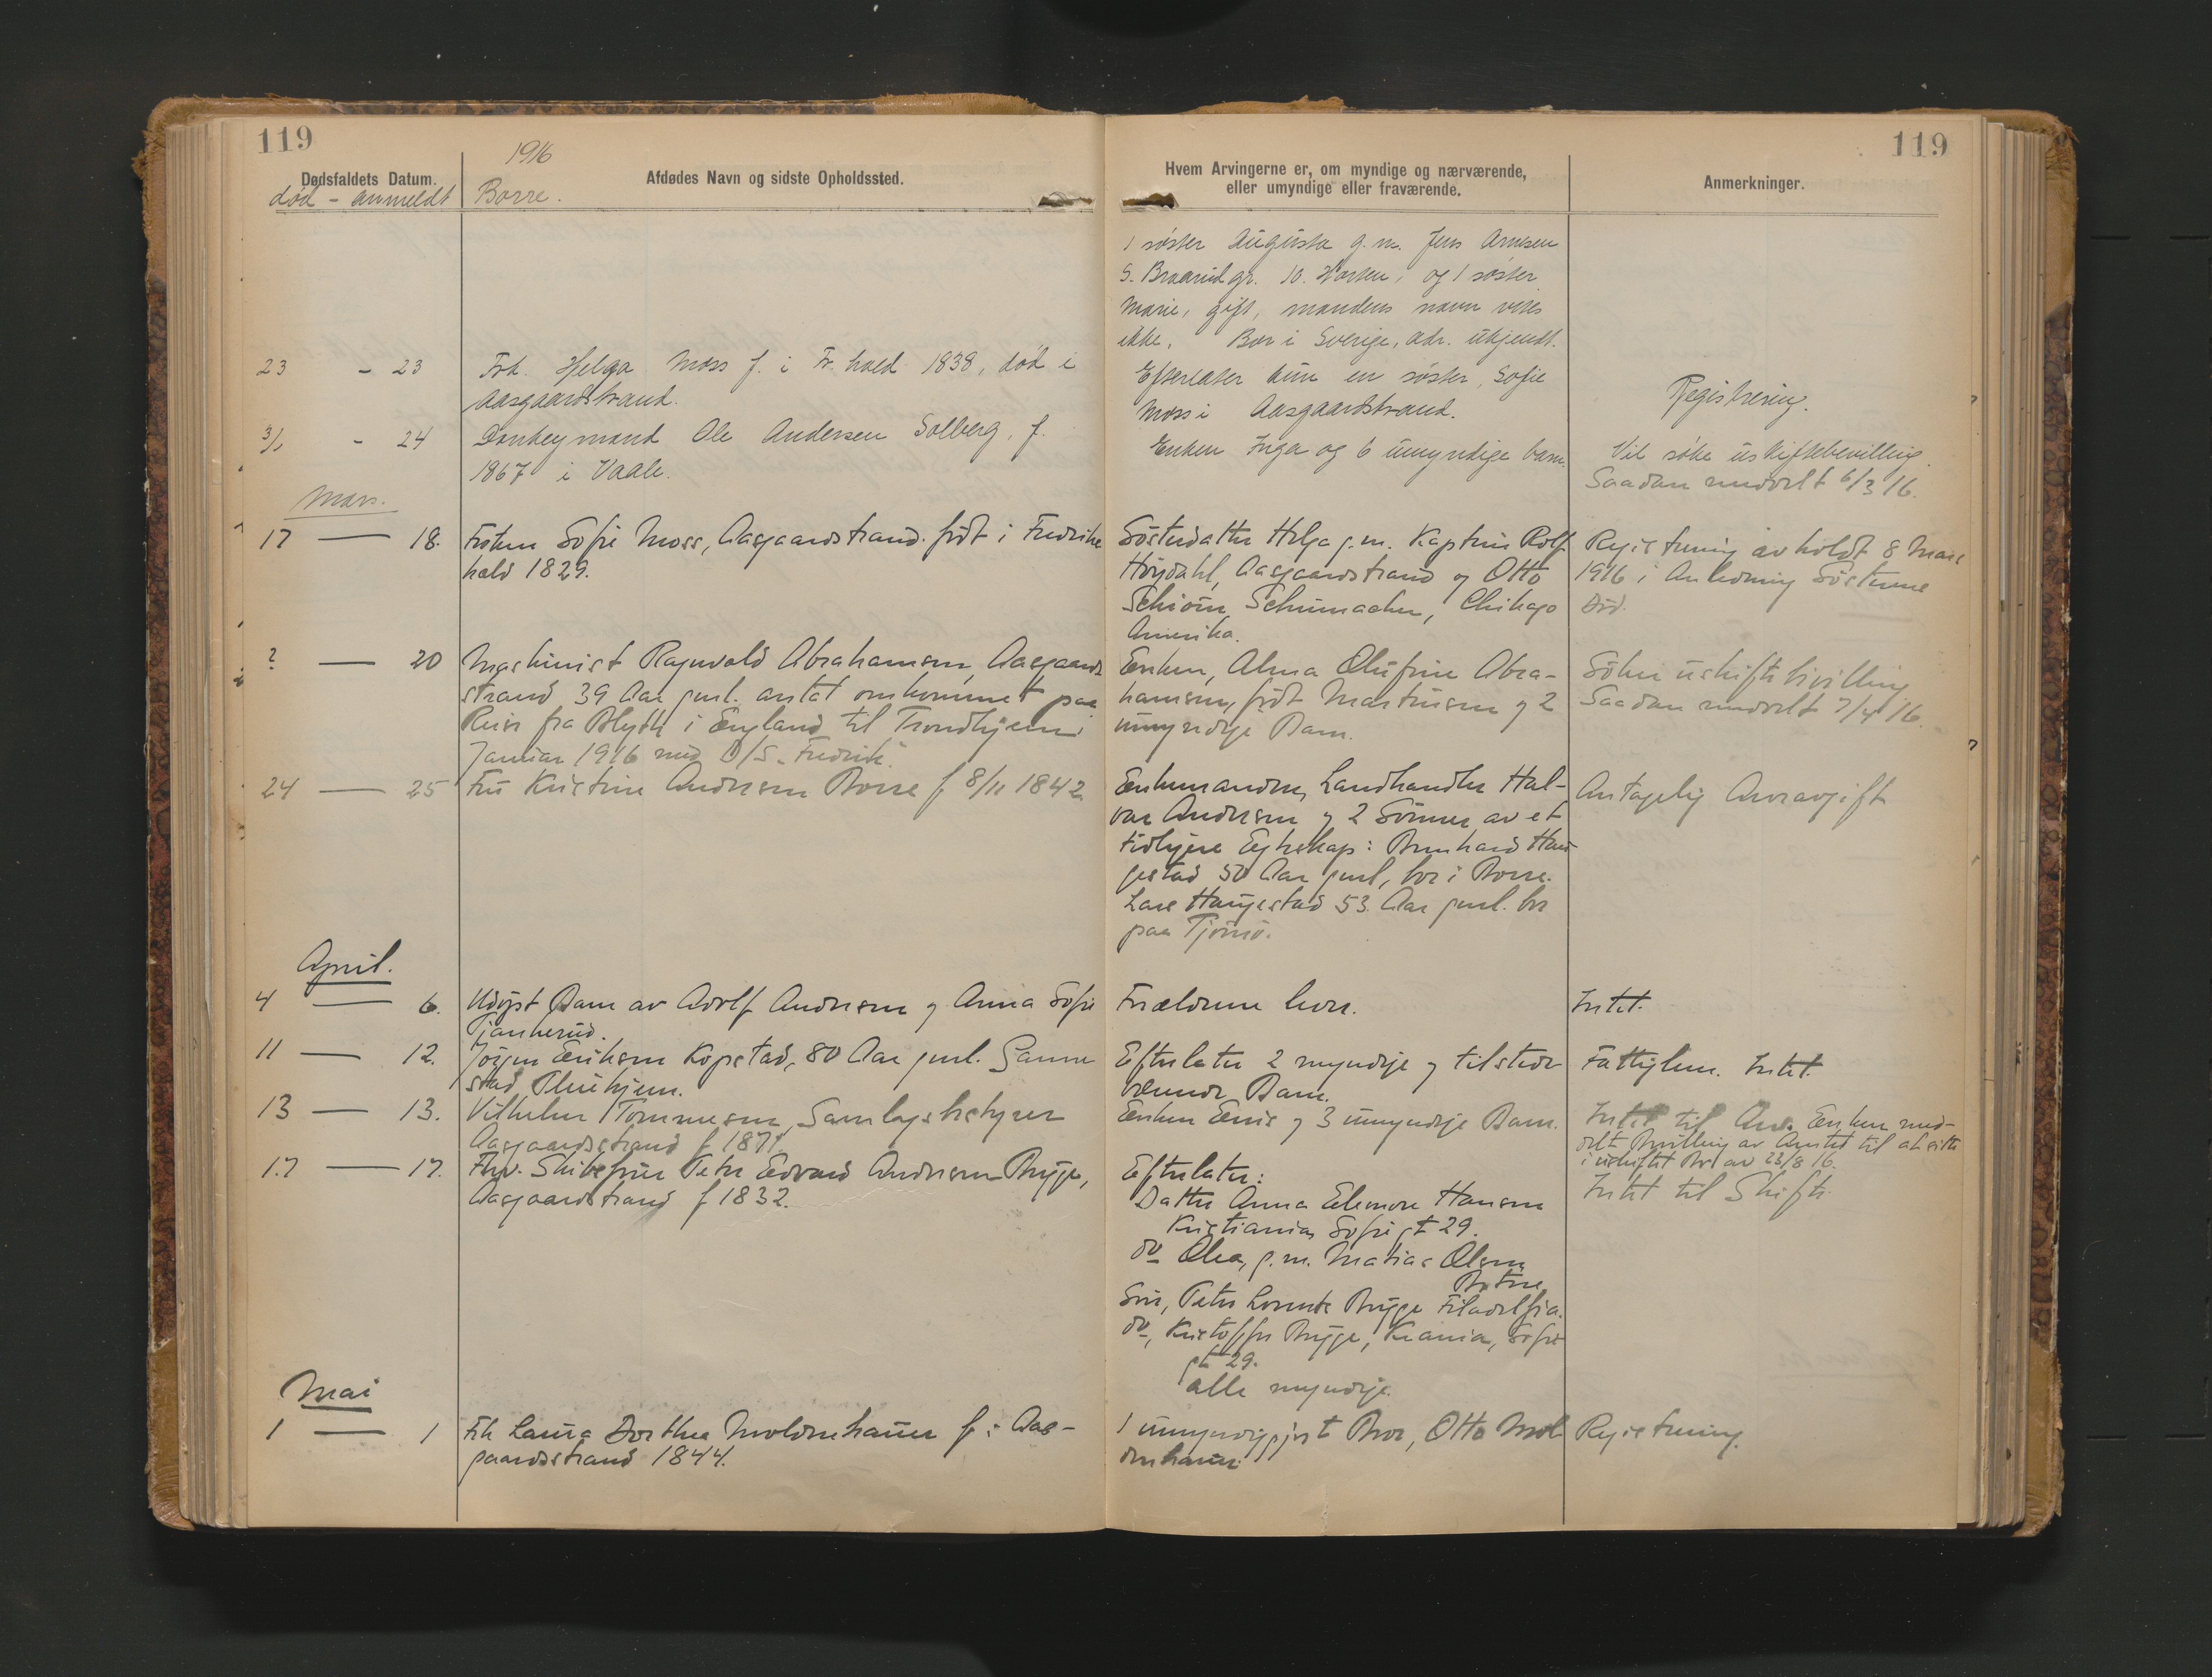 119
1916
Dødsfaldets Datum.
død - anmeldt
Afdødes Navn og sidste Opholdssted.
Borre.
Hvem Arvingerne er, om myndige og nærværende,
eller umyndige eller fraværende.
Anmerkninger.
119
1 søster Augusta g.m. Jens Arnesen
S. Braarudgr. 10. Horten, og 1 søster
Marie, gift, mandens navn vites
ikke. Bor i Sverige, adr. ukjendt.
23 - 23
Frk. Helga Moss f. i Fr.hald 1838, død i
Aasgaardstrand.
Efterlater kun en søster, Sofie
Moss i Aasgaardstrand.
Registrering.
3/1 - 24
Donkeymand Ole Andersen Solberg, f.
1867 i Vaale.
Enken Inga og 6 umyndige barn.
Vil søke uskiftebevilling.
Saadan meddelt 6/3 16.
Mars.
17 — 18.
Frøken Sofie Moss, Aasgaardstrand. født i Fredriks
hald 1829.
Søsterdatter Helga g.m. Kaptein Rolf
Høydahl, Aasgaardstrand og Otto
Schiøin Schumacher, Chikago
Amerika.
Registrering avholdt 8 Mars
1916 i Anledning Søsterens
Død.
? — 20
Maskinist Ragnvald Abrahamsen, Aasgaard
strand 39 Aar gml. antat omkommet paa
Reise fra Blyth i England til Trondhjem i
Januar 1916 med D/S "Fredrik".
Enken, Alma Olufine Abra-
hamsen, født Martinsen og 2
umyndige Barn.
Søker uskiftebevilling
Saadan meddelt 7/4 16.
24 — 25
Fru Kristine Andersen Borre f 8/11 1842
Enkemanden, Landhandler Hal-
vor Andersen og 2 Sønner av et
tidligere Egteskap: Bernhard Hau
gestad 50 Aar gml, bor i Borre.
Lars Haugestad 53 Aar gml. bor
paa Tjømø.
Antagelig Arveavgift
April.
4 — 6.
Udøpt Barn av Adolf Andersen og Anna Sofie
Tjannerud.
Forældrene lever.
Intet.
11 — 12.
Jørgen Eriksen Kopstad, 80 Aar gml. Samme
sted Pleiehjem.
Efterlater 2 myndige og tilstede
værende Barn.
Fattiglem. Intet.
13 — 13.
Vilhelm Tommesen, Samlagsbestyrer
Aasgaardsstrand f 1871.
Enken Enis og 3 umyndige Barn.
Intet til Arv. Enken med-
delt Bevilling av Amtet til at sitte
i uskiftet Bo av 23/8 16.
17 — 17.
Fhv. Skibsfører Peter Edvard Andersen Brygge,
Aasgaardstrand f 1832.
Efterlater:
Datter Anna Elenore Hansen
Kristiania, Sofiegt 29.
do Olea, g.m. Matias Olsen
Botne
Søn, Peter Lorents Brygge Filadelfia.
do, Kristoffer Brygge, Kr.ania, Sofie
gt 29.
alle myndige.
Intet til Skifte.
Mai
1 — 1
Frk Laura Dorthea Moldenhauer f. i Aas-
gaardsstrand 1844.
1 umyndiggjort Bror, Otto Mol
denhauer
Registrering.